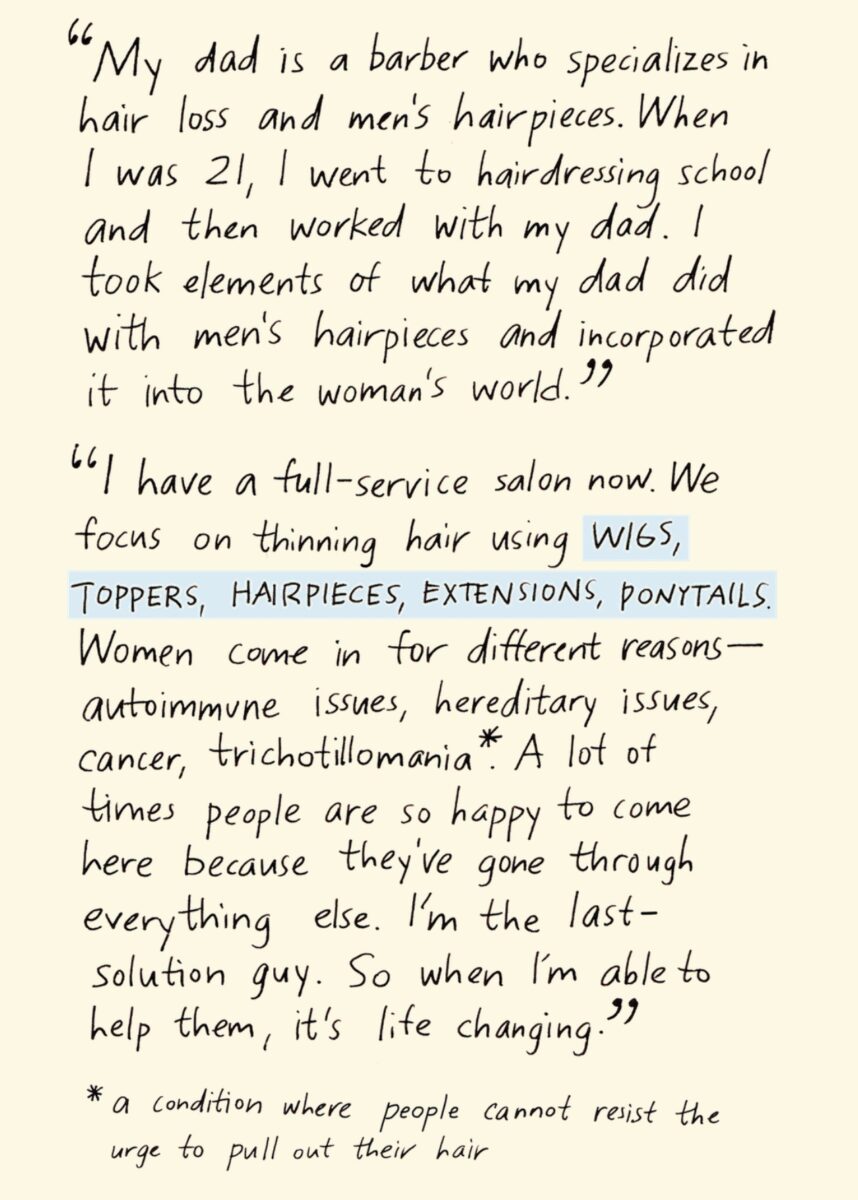 “My dad is a barber who specializes in
hair loss and men's hairpieces. When
I was 21, I went to hairdressing school
and then worked with my dad. I
took elements of what my dad did
with men's hairpieces and incorporated
it into the woman's world.”
“I have a full-service salon now. We
focus on thinning hair using WIGS,
TOPPERS, HAIRPIECES, EXTENSIONS, PONYTAILS.
Women come in for different reasons—
autoimmune issues, hereditary issues,
cancer, trichotillomania*. A lot of
times people are so happy to come
here because they've gone through
everything else. I'm the last-
solution guy. So when I'm able to
help them, it's life changing.”
* a condition where people cannot resist the
urge to pull out their hair